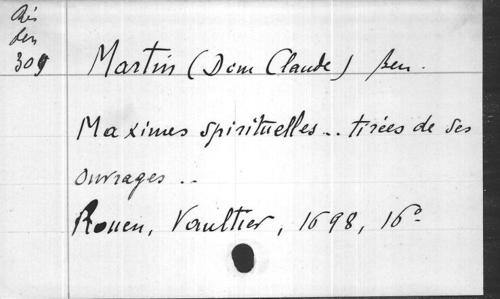 Rés
ben
309
Martin (Dom Claude) ben.
Maximes spirituelles .. tirées de ses
ouvrages ..
Rouen, Vaultier, 1698, 16°